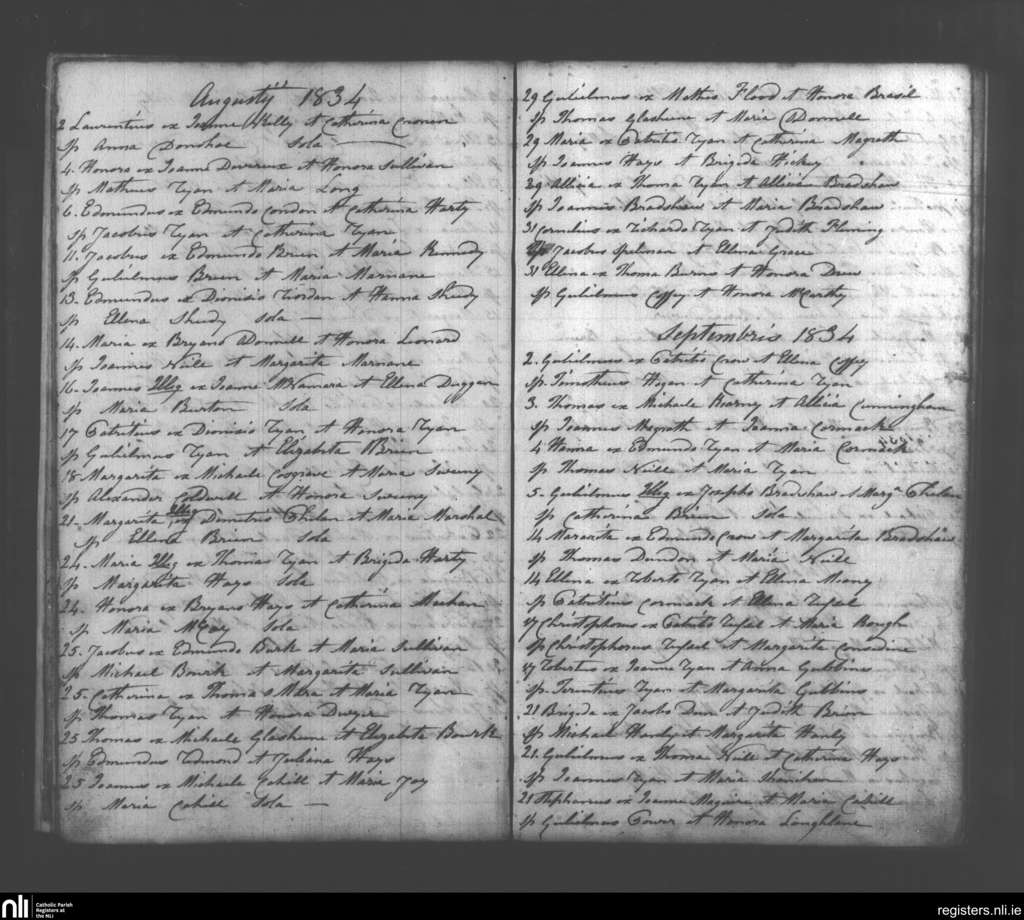 Augustÿ 1834
2 Laurentius ex Joanne Kelly et Catherina Cronin
Sp Anna Donohoe Sola
4. Honora ex Joanne Devereux et Honora Sullivan
Sp Matheus Ryan et Maria Long
6. Edmundus ex Edmundo Condon et Catherina Harty
Sp Jacobus Ryan et Catherina Ryan
11. Jacobus ex Edmundo Brien et Maria Kennedy
Sp Gulielmus Brien et Maria Marnane
13. Edmundus ex Dionisio Riordan et Hanna Sheedy
Sp Ellena Sheedy Sola
14. Maria ex Bryano Donnell et Honora Leonard
Sp Joannes Neill et Margarita Marnane
16. Joannes Illeg ex Joanne McNamara et Ellena Duggan
Sp Maria Burton Sola
17 Patritius ex Dionisio Ryan et Honora Ryan
Sp Gulielmus Ryan et Elizabeta Brien
18 Margarita ex Michaele Cosgrave et Maria Sweeny
Sp Alexander Coldwell et Honora Sweeny
21. Margarita Illeg ex Demetrio Phelan et Maria Marshal
Sp Ellena Brien Sola
24. Maria Illeg ex Thomas Ryan et Brigida Harty
Sp Margarita Hays Sola
24. Honora ex Bryano Hays et Catherina Meehan
Sp Maria McCoy Sola
25. Jacobus ex Edmundo Burk et Maria Sullivan
Sp Michael Bourk et Margarita Sullivan
25. Catherina ex Thoma s Mara et Maria Ryan
Sp Thomas Ryan et Honora Dwyer
25 Thomas ex Michaele Glasheene et Elizabeta Bourk
Sp Edmundus Redmond et Juliana Hays
25 Joannes ex Michaele Cahill et Maria Joy
Sp Maria Cahill Sola
29 Gulielmus ex Matheo Flood et Honora Brasil
Sp Thomas Glasheene et Maria ODonnell
29 Maria ex Patritio Ryan et Catherina Magrath
Sp Joannes Hays et Brigida Hickey
29 Allicia ex Thoma Ryan et Allicia Bradshaw
Sp Joannes Bradshaw et Maria Bradshaw
31 Cornelius ex Richardo Ryan et Judith Fleming
Sp Jacobus Spelman et Ellena Grace
31 Ellena ex Thoma Burns et Honora Drew
Sp Gulielmus Coffey et Honora McCarthy
Septembris 1834
2. Gulielmus ex Patritio Crow et Ellena Coffey
Sp. Timotheus Hogan et Catherina Ryan
3. Thomas ex Michaele Kearny et Allicia Cunningham
Sp Joannes Magrath et Joanna Cormack
4 Hanora ex Edmundo Ryan et Maria Cormack
Sp Thomas Neill et Maria Ryan
5. Gulielmus Illeg ex Josepho Bradshaw et Margta Phelan
Sp Catherina Brien Sola
14 Margarita ex Edmundo Crow et Margarita Bradshaw
Sp Thomas Dundon et Maria Neill
14 Ellena ex Roberto Ryan et Ellena Meany
Sp Patritius Cormack et Ellena Rafael
17 Christophorus ex Patritio Rafael et Maria Bough
Sp Christophorus Rafael et Margarita Considine
17 Robertus ex Joanne Ryan et Anna Gubbins
Sp. Terentius Ryan et Margarita Gubbins
21 Brigida ex Jacobo Drew et Judith Brien
Sp Michael Hanly et Margarita Hanly
21. Gulielmus ex Thoma Neill et Catherina Hays
Sp Joannes Ryan et Maria Shanihan
21 Stephanus ex Joanne Maguire et Maria Cahill
Sp Gulielmus Power et Honora Loughlane
nli Catholic Parish Registers at the NLI
registers.nli.ie